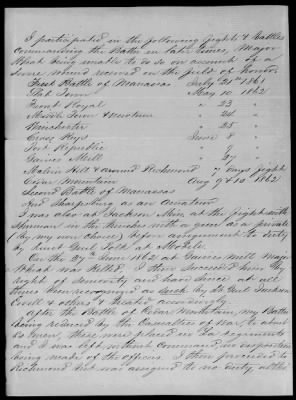 I participated in the following fights & battles
commanding the Battn in later times, Major
Wheat being unable to do so on account of a
severe wound received on the field of honor
First Battle of Manassas July 21st 1861
May 10 1862
Front Royal " 23 "
Middle Town " 24 "
Winchester " 25 "
Cross Keys June 8 "
Port Republic " 9 "
Gaines Mill " 27 "
Malvin Hill & around Richmond 7 days fight
Cedar Mountain Aug 9 & 10th 1862
Second Battle of Manassas
And Sharpsburg as an
I was also at Jackson Miss at the fight with
Sherman in the trenches with a gun as a private
(by my own choice) before assignment to duty
by Lieut Genl Polk at Mobile.
On the 27th June 1862 at Gaines mill Major
Wheat was killed. I then succeeded him by
right of seniority and have since at all
times been recognized as such by Lt Genl Jackson
Ewell & others & treated accordingly.
After the battle of Cedar Mountain, my Battn
being reduced by the Casualties of War to about
men, these were placed in La regiments
and I was left without command, no disposition
being made of the officers. I then proceeded to
Richmond but was assigned to no duty, altho